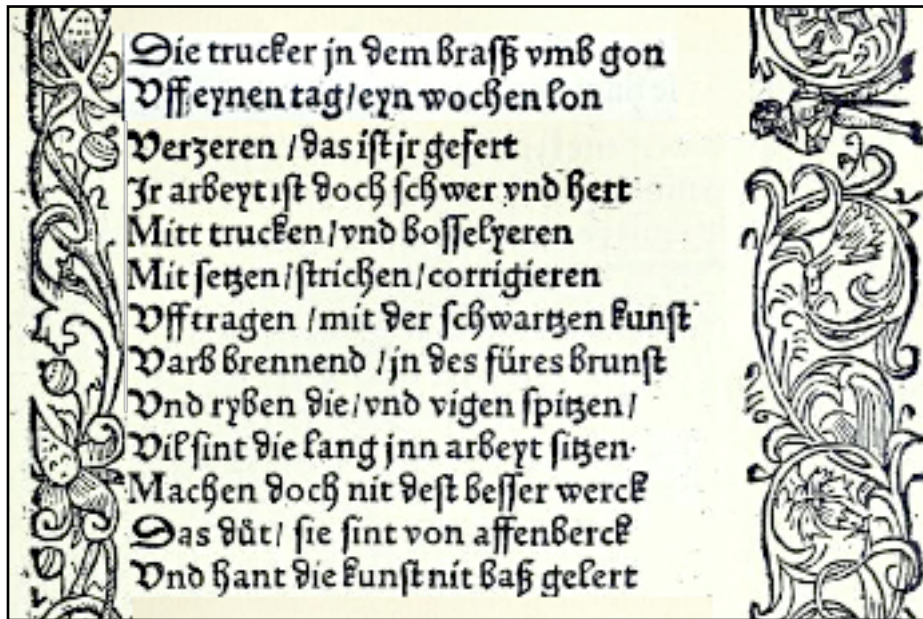 Die trucker jn dem braſß vmb gon
Vff eynen tag/eyn wochen lon
Verzeren /das iſt jr gefert
Jr arbeyt iſt doch ſchwer vnd hert
Mitt trucken/vnd boſſelyeren
Mit ſetzen/ſtrichen/corrigieren
Vfftragen /mit der ſchwartzen kunſt
Varb brennend /jn des füres brunſt
Vnd ryben die/vnd vigen ſpitzen/
Vil ſint die lang jnn arbeyt ſitzen·
Machen doch nit deſt beſſer werck
Das důt/ ſie ſint von affenberck
Vnd hant die kunſt nit baſß gelert